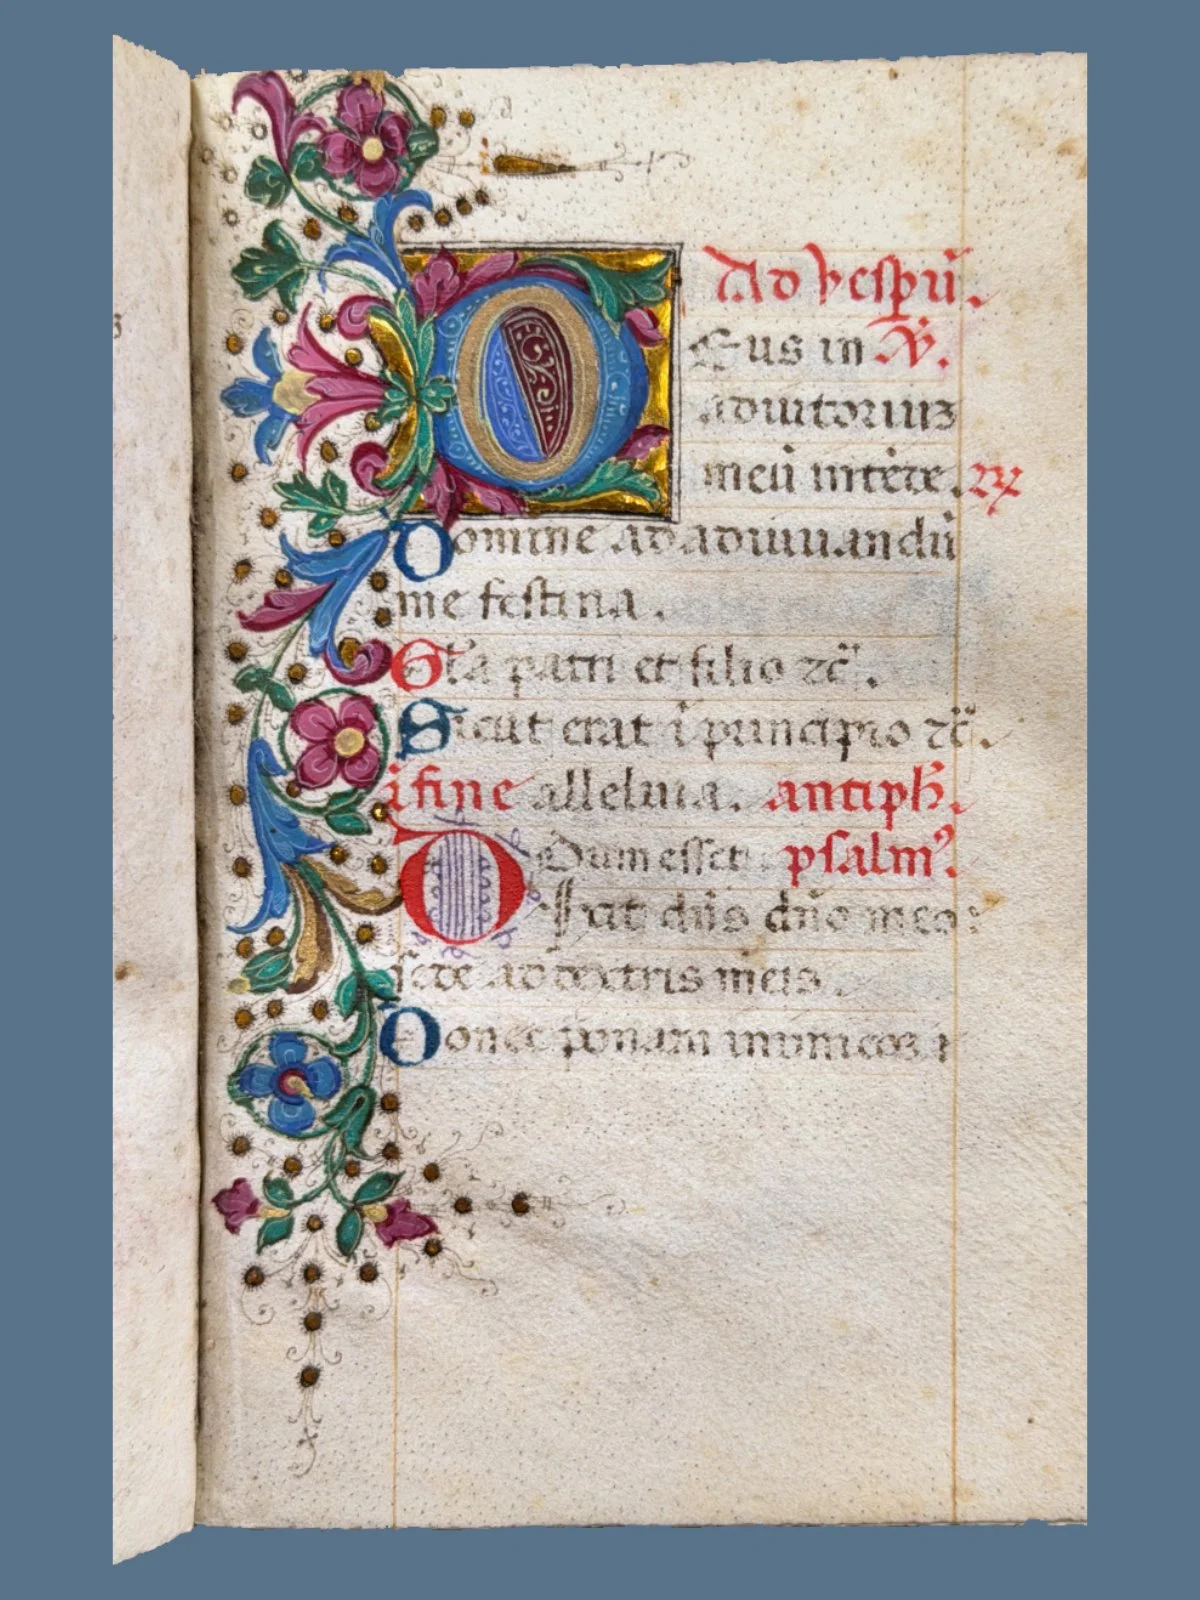 Ad vesperũ.
DEus in ℣.
adiutoriuꝫ
meũ intẽde. ℞
Domine ad adiuuandũ
me festina.
Gl̃a patri et filio ⁊c̃.
Sicut erat ĩ principio ⁊c̃.
ĩ fine alleluia. antiph̃.
Dum esset psalmꝰ.
DIxit dñs dño meo:
sede ad dextris meis.
Donec ponam inimicos